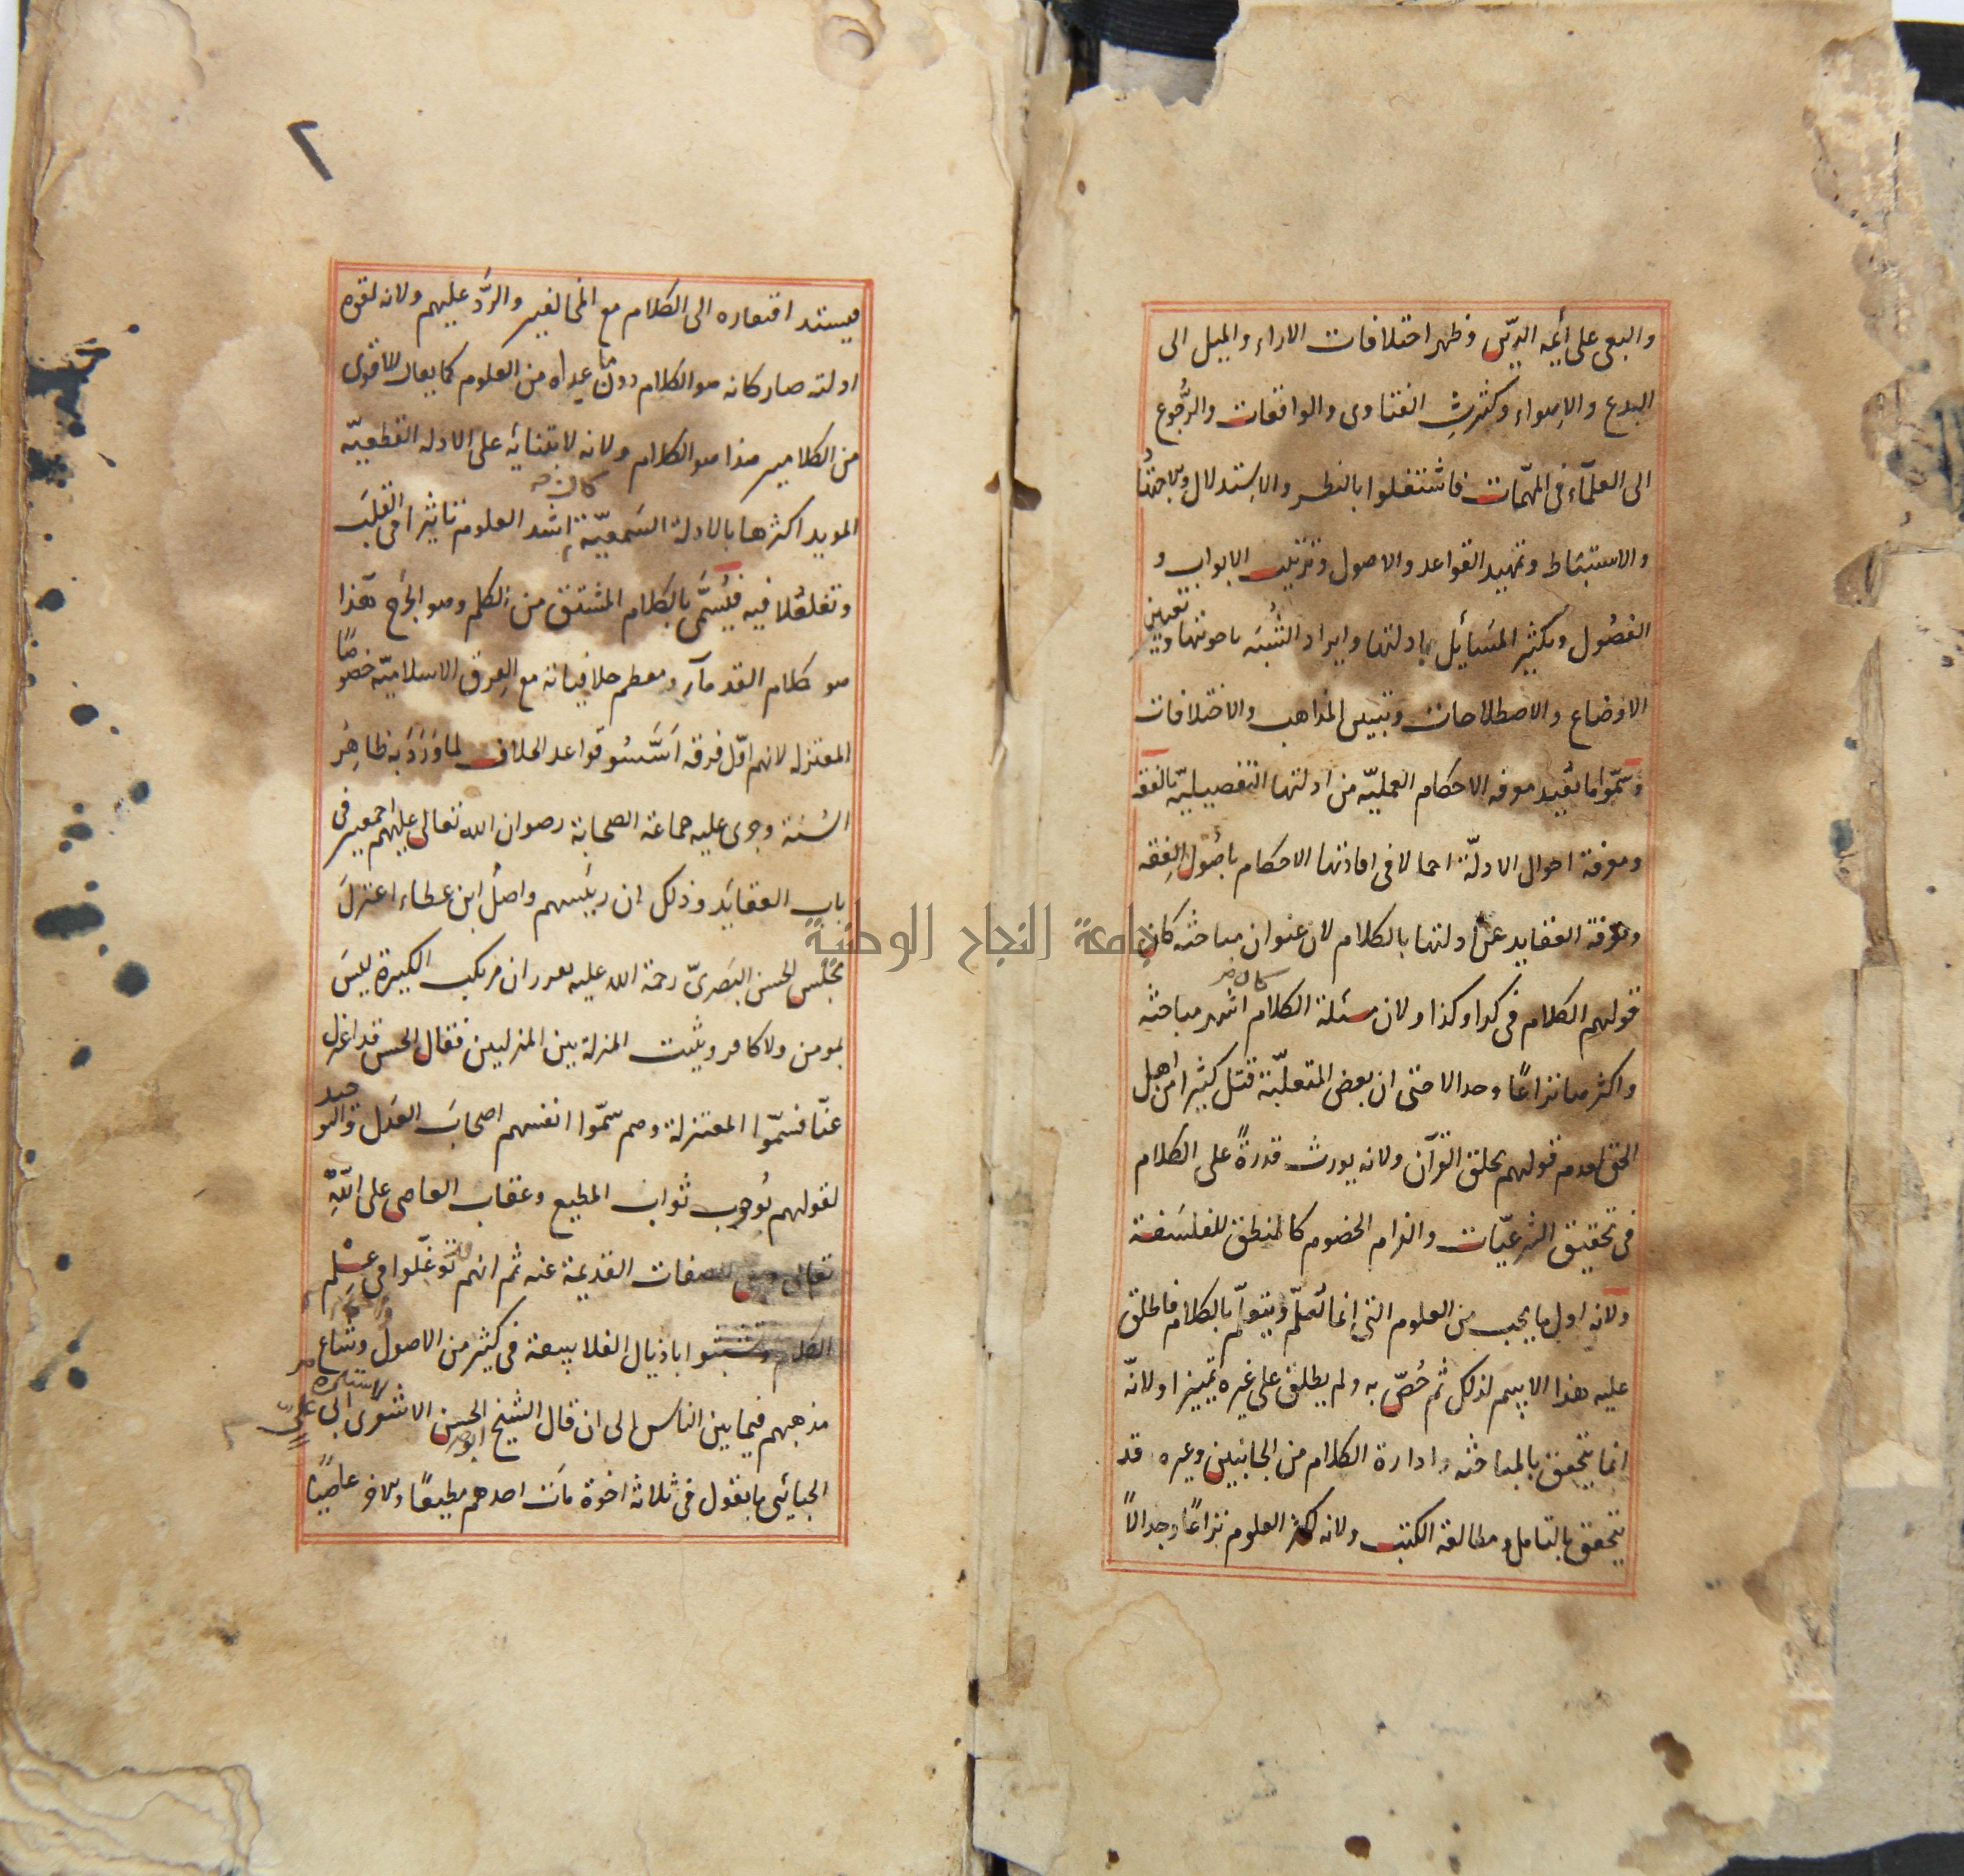 والبغى على أيمه الدين وظهر اختلافات الاراء والميل الى
البدع والاهواء وكثرث الفتاوى والواقعات والرُّجُوع
الى العلمآء فى المهمّات فاشتغلوا بالنظر والاستدلال والاجتهُا
والاستنباط وتمهيد القواعد والاصول وترتيب الابواب و
الفصُول وتكثير المسَائِل بادلتها وايراد الشُبَه باجوبتها وتعيين
الاوضاع والاصطلاحات وتبيين المذاهب والاختلافات
وسمّوا ما يُفيد معرفه الاحكام العمليّه من ادلتها التفصيليّه بالفقه
ومعرفة احوال الادلّة اجمالا فى افادتها الاحكام باُصُول الفِقه
ومعرفة العقايد عن ادلتها بالكلام لان عنوان مباحثه كان
قولهم الكلام فى كدا وكذا ولان مسئلة الكلام كان اشهر مباحثه
واكثرها نزاعًا وجدالا حتى ان بعض المتغلّبة قتل كثيرا من اهل
الحق لعدم قولهم بخلق القرآن ولانه يورث قدرةً على الكلام
فى تحقيق الشرعيّات والزام الخصوم كالمنطق للفلسَفة
ولانه اول ما يجب من العلوم التى إنما تُعلّم وتتعلّم بالكلام فاطلق
عليه هذا الاسم لذلك ثم خُصّ به ولم يطلق على غيره تمييزا ولانّه
انما يتحقق بالمباحثه وادارة الكلام من الجانبين وغيره قد
يتحقق بالتامل ومطالعة الكتب ولانه اكثر العلوم نزاعًا وجدالاً
٢
فيستد افتقاره الى الكلام مع المخالفين والرَّد عليهم ولانه لقوه
ادلته صار كانه هو الكلام دون ما عداه من العلوم كما يقال للاقوى
من الكلامين هذا هو الكلام ولانه لابتنائه على الادله القطعيّه
المويد اكثرها بالادلة السَمعيّة كان اشد العلوم تاثيرا فى القلبَ
وتغلغُلا فيه فيُسَمَّى بالكلام المشتق من الكلم وهو الجَرح هَذا
هو كلام القدمآء ومعظم خلافياته مع الفِرَق الاسلاميّه خصوصًا
المعتزله لانهم اوّل فرقه اَسَّسُو قواعد الخلاف لما وَرَدَ به ظاهِرُ
السُنة وجرى عليه جماعة الصحابة رضوان الله تعالى عليهم اجمعين فى
باب العقايَد وذلك ان ريَئسهم واصلُ ابن عطاء اعتزلَ
مجْلس الحسن البَصرىّ رحمة الله عليه يقرر ان مرتكب الكبيرة ليسَ
بمومن ولا كافر ويثبت المنزلة بين المنزلتين فقال الحسن قد اعتزل
عنّا فسمّوا المعتزلة وهم سمّوا انفسهم اصحابَ العدَل والتوحيد
لقولهم بُوجوب ثواب المطيع وعقاب العاصى على اللّهِ
تعالى ونفى الصفات القديمة عنه ثم انهم توغّلوا فى عِلْم
الكلام وتشبثوا باذيال الفلاسفة فى كثير من الاصول وشَاع
مذهبهم فيما بين الناس الى ان قال الشيخ ابو الحسن الاشعرى لاستاذه ابى على
الجبائى ما تقول فى ثلاثه اخوة مَات احدهم مطيعًا والاخر عاصيًا
جامعة النجاح الوطنية